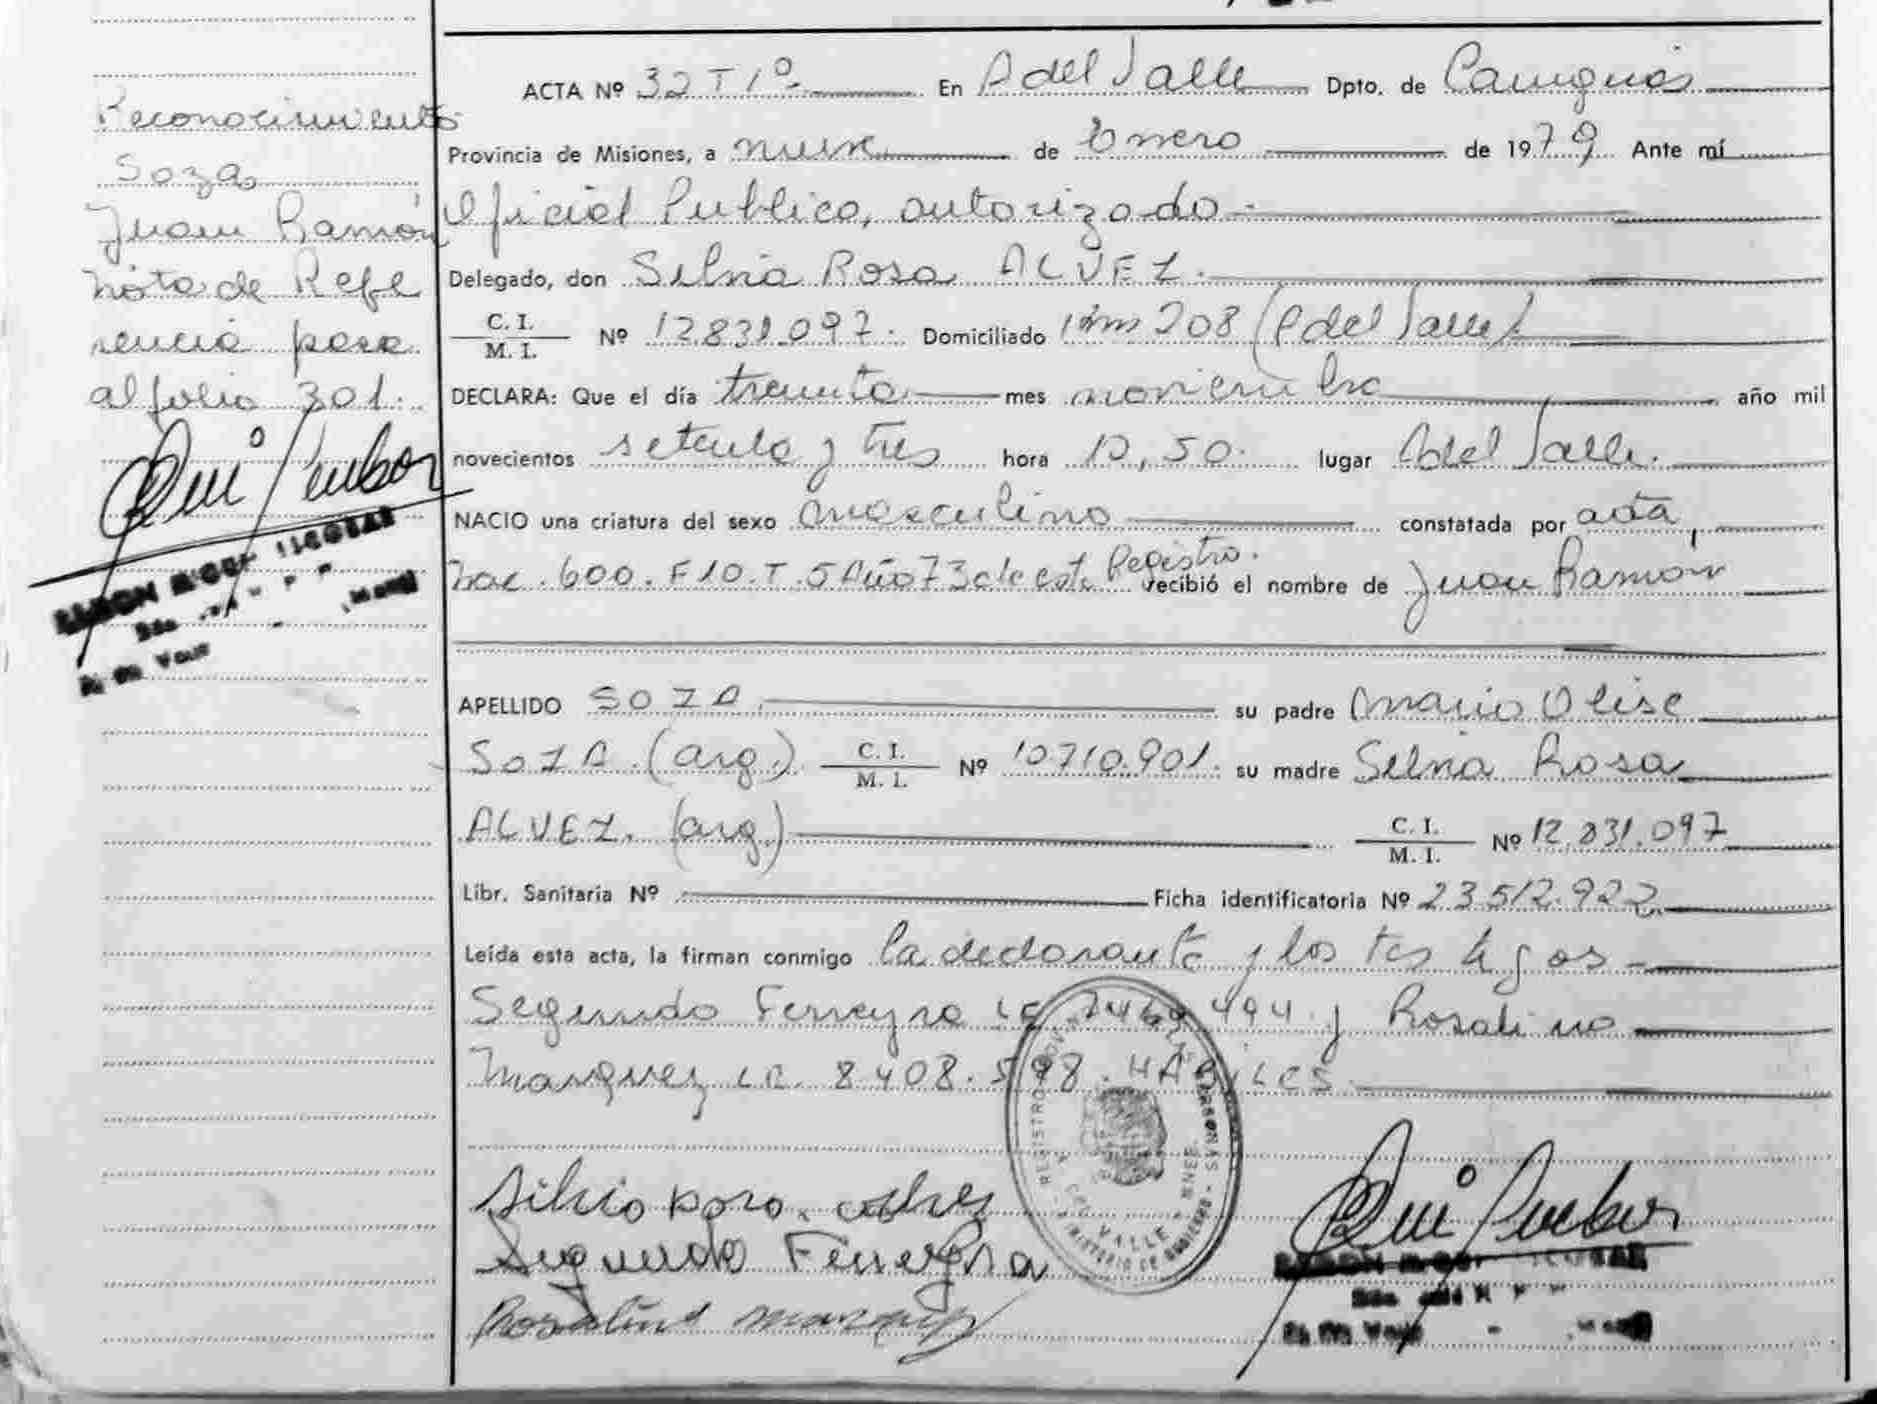 Reconocimiento
Soza
Juan Ramón
Nota de Refe
rencia pasa
al folio 301.
ACTA Nº 32 T 1º En A del Valle Dpto. de Cainguás
Provincia de Misiones, a nueve de Enero de 1979 Ante mí
Oficial Publico, autorizado.
Delegado, don Silvia Rosa ALVEZ.
C. I. / M. I. Nº 12.831.097. Domiciliado Km 208 (A del Valle)
DECLARA: Que el día treinta mes noviembre año mil
novecientos setenta y tres hora 12,50. lugar A del Valle.
NACIO una criatura del sexo masculino constatada por acta,
Nac. 600. F 10. T. 5 Año 73 de este Registro. recibió el nombre de Juan Ramón
APELLIDO SOZA su padre Mario Olise
SOZA (arg.) C. I. / M. I. Nº 10710.901. su madre Silvia Rosa
ALVEZ. (arg.) C. I. / M. I. Nº 12.831.097
Libr. Sanitaria Nº Ficha identificatoria Nº 23512.922
Leída esta acta, la firman conmigo la declarante y los testigos
Segundo Ferreyra 494 y Rosalino
Marquez 8408.598. HABILES
Segundo Ferreyra
Rosalino Marquez
REGISTRO
VALLE
PERSONAS
MINISTERIO DE